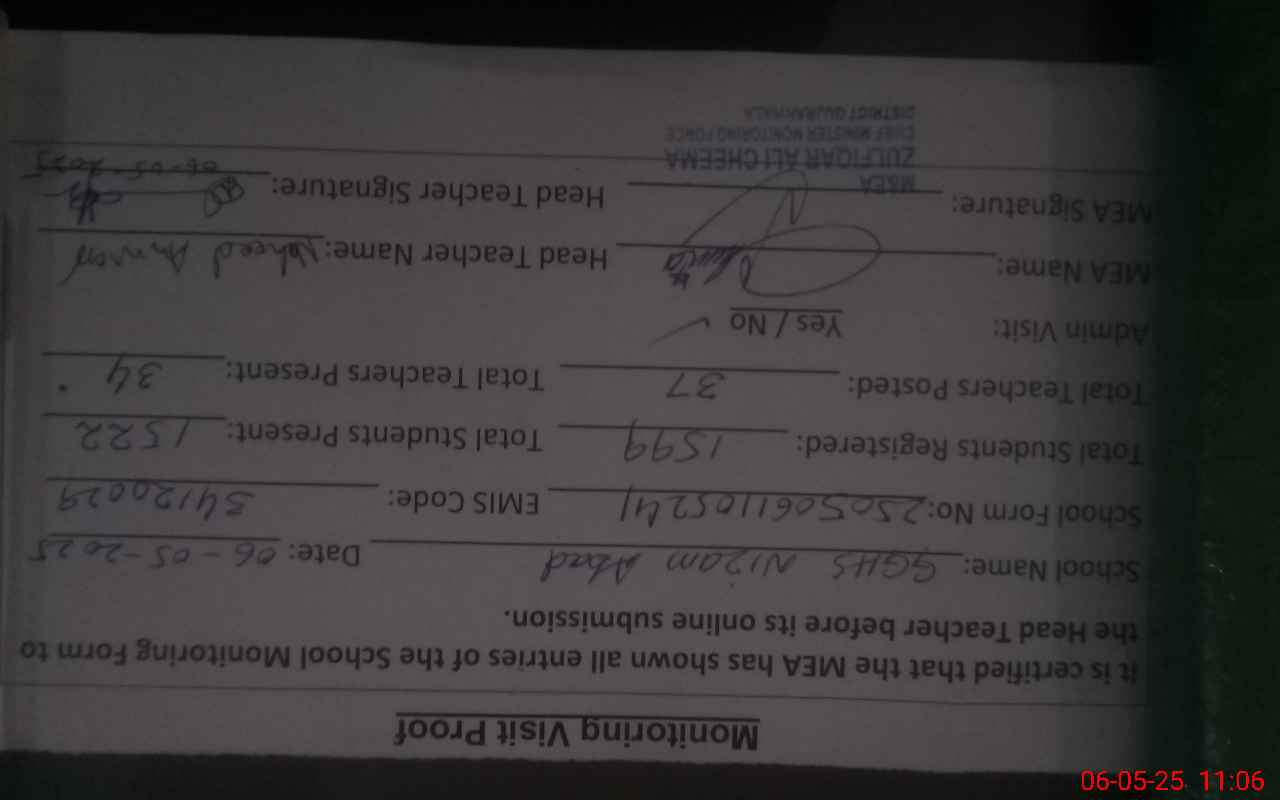 Monitoring Visit Proof
It is certified that the MEA has shown all entries of the School Monitoring Form to
the Head Teacher before its online submission.
School Name: GGHS Nizam Abad Date: 06-05-2025
School Form No: 25050611052411 EMIS Code: 34120029
Total Students Registered: 1599 Total Students Present: 1522
Total Teachers Posted: 37 Total Teachers Present: 34
Admin Visit: Yes / No ✓
MEA Name: Head Teacher Name: Naheed Anwar
MEA Signature: Head Teacher Signature:
06-05-2025
M&EA
ZULFIQAR ALI CHEEMA
CHIEF MINISTER MONITORING FORCE
DISTRICT GUJRANWALA
06-05-25 11:06